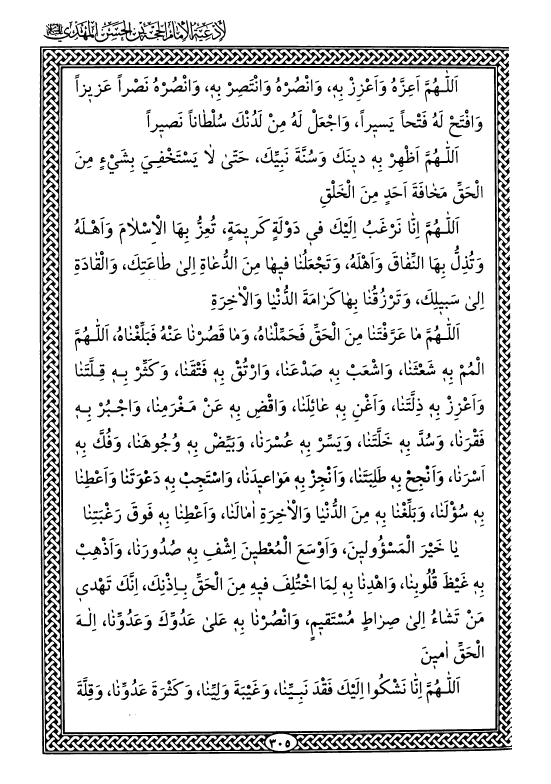 لأدعية الإمام الحجة بن الحسن المهدي
اَللّٰهُمَّ اَعِزَّهُ وَاَعْزِزْ بِهِ، وَانْصُرْهُ وَانْتَصِرْ بِهِ، وَانْصُرْهُ نَصْراً عَزيزاً
وَافْتَحْ لَهُ فَتْحاً يَسيراً، وَاجْعَلْ لَهُ مِنْ لَدُنْكَ سُلْطاناً نَصيراً
اَللّٰهُمَّ اَظْهِرْ بِهِ دينَكَ وَسُنَّةَ نَبِيِّكَ، حَتّىٰ لاٰ يَسْتَخْفِيَ بِشَيْءٍ مِنَ
الْحَقِّ مَخٰافَةَ اَحَدٍ مِنَ الْخَلْقِ
اَللّٰهُمَّ اِنّٰا نَرْغَبُ اِلَيْكَ في دَوْلَةٍ كَريمَةٍ، تُعِزُّ بِهَا الْاِسْلاٰمَ وَاَهْلَهُ
وَتُذِلُّ بِهَا النِّفٰاقَ وَاَهْلَهُ، وَتَجْعَلُنٰا فيهٰا مِنَ الدُّعٰاةِ اِلىٰ طٰاعَتِكَ، وَالْقٰادَةِ
اِلىٰ سَبيلِكَ، وَتَرْزُقُنٰا بِهٰا كَرٰامَةَ الدُّنْيٰا وَالْاٰخِرَةِ
اَللّٰهُمَّ مٰا عَرَّفْتَنٰا مِنَ الْحَقِّ فَحَمِّلْنٰاهُ، وَمٰا قَصُرْنٰا عَنْهُ فَبَلِّغْنٰاهُ، اَللّٰهُمَّ
الْمُمْ بِهِ شَعْثَنٰا، وَاشْعَبْ بِهِ صَدْعَنٰا، وَارْتُقْ بِهِ فَتْقَنٰا، وَكَثِّرْ بِهِ قِلَّتَنٰا
وَاَعْزِزْ بِهِ ذِلَّتَنٰا، وَاَغْنِ بِهِ عٰائِلَنٰا، وَاقْضِ بِهِ عَنْ مَغْرَمِنٰا، وَاجْبُرْ بِهِ
فَقْرَنٰا، وَسُدَّ بِهِ خَلَّتَنٰا، وَيَسِّرْ بِهِ عُسْرَنٰا، وَبَيِّضْ بِهِ وُجُوهَنٰا، وَفُكَّ بِهِ
اَسْرَنٰا، وَاَنْجِحْ بِهِ طَلِبَتَنٰا، وَاَنْجِزْ بِهِ مَوٰاعيدَنٰا، وَاسْتَجِبْ بِهِ دَعْوَتَنٰا وَاَعْطِنٰا
بِهِ سُؤْلَنٰا، وَبَلِّغْنٰا بِهِ مِنَ الدُّنْيٰا وَالْاٰخِرَةِ اٰمٰالَنٰا، وَاَعْطِنٰا بِهِ فَوقَ رَغْبَتِنٰا
يٰا خَيْرَ الْمَسْؤُولينَ، وَاَوْسَعَ الْمُعْطينَ اِشْفِ بِهِ صُدُورَنٰا، وَاَذْهِبْ
بِهِ غَيْظَ قُلُوبِنٰا، وَاهْدِنٰا بِهِ لِمَا اخْتُلِفَ فيهِ مِنَ الْحَقِّ بِاِذْنِكَ، اِنَّكَ تَهْدي
مَنْ تَشٰاءُ اِلىٰ صِرٰاطٍ مُسْتَقيمٍ، وَانْصُرْنٰا بِهِ عَلىٰ عَدُوِّكَ وَعَدُوِّنٰا، اِلٰهَ
الْحَقِّ اٰمينَ
اَللّٰهُمَّ اِنّٰا نَشْكُوا اِلَيْكَ فَقْدَ نَبِيِّنٰا، وَغَيْبَةَ وَلِيِّنٰا، وَكَثْرَةَ عَدُوِّنٰا، وَقِلَّةَ
٣٠٥